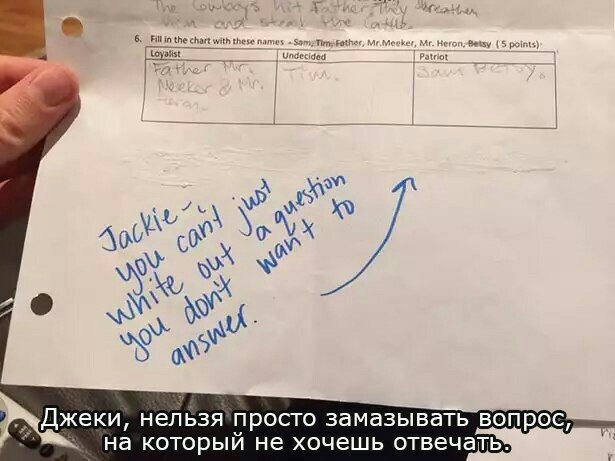 The Cowboys hit Father, They threathen
him and steal the Cattle.
6. Fill in the chart with these names - Sam, Tim, Father, Mr.Meeker, Mr. Heron, Betsy ( 5 points)
Loyalist Undecided Patriot
Father Mr. Tim. Sam Betsy.
Meeker & Mr.
Heron.
Jackie -
you can't just
white out a question
you don't want to
answer.
Джеки, нельзя просто замазывать вопрос,
на который не хочешь отвечать.